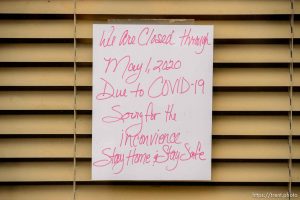 We Are Closed through
May 1, 2020
Due to COVID-19
Sorry for the
inconvience
Stay Home & Stay Safe
https://trent.photo